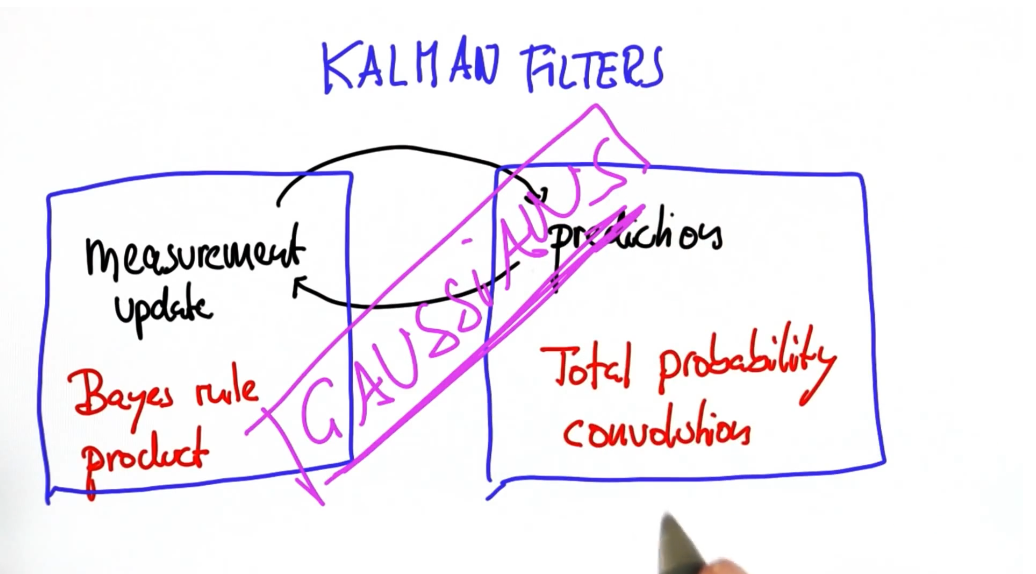 KALMAN FILTERS
measurement
update
Bayes rule
product
GAUSSiANS
prediction
Total probability
convolution